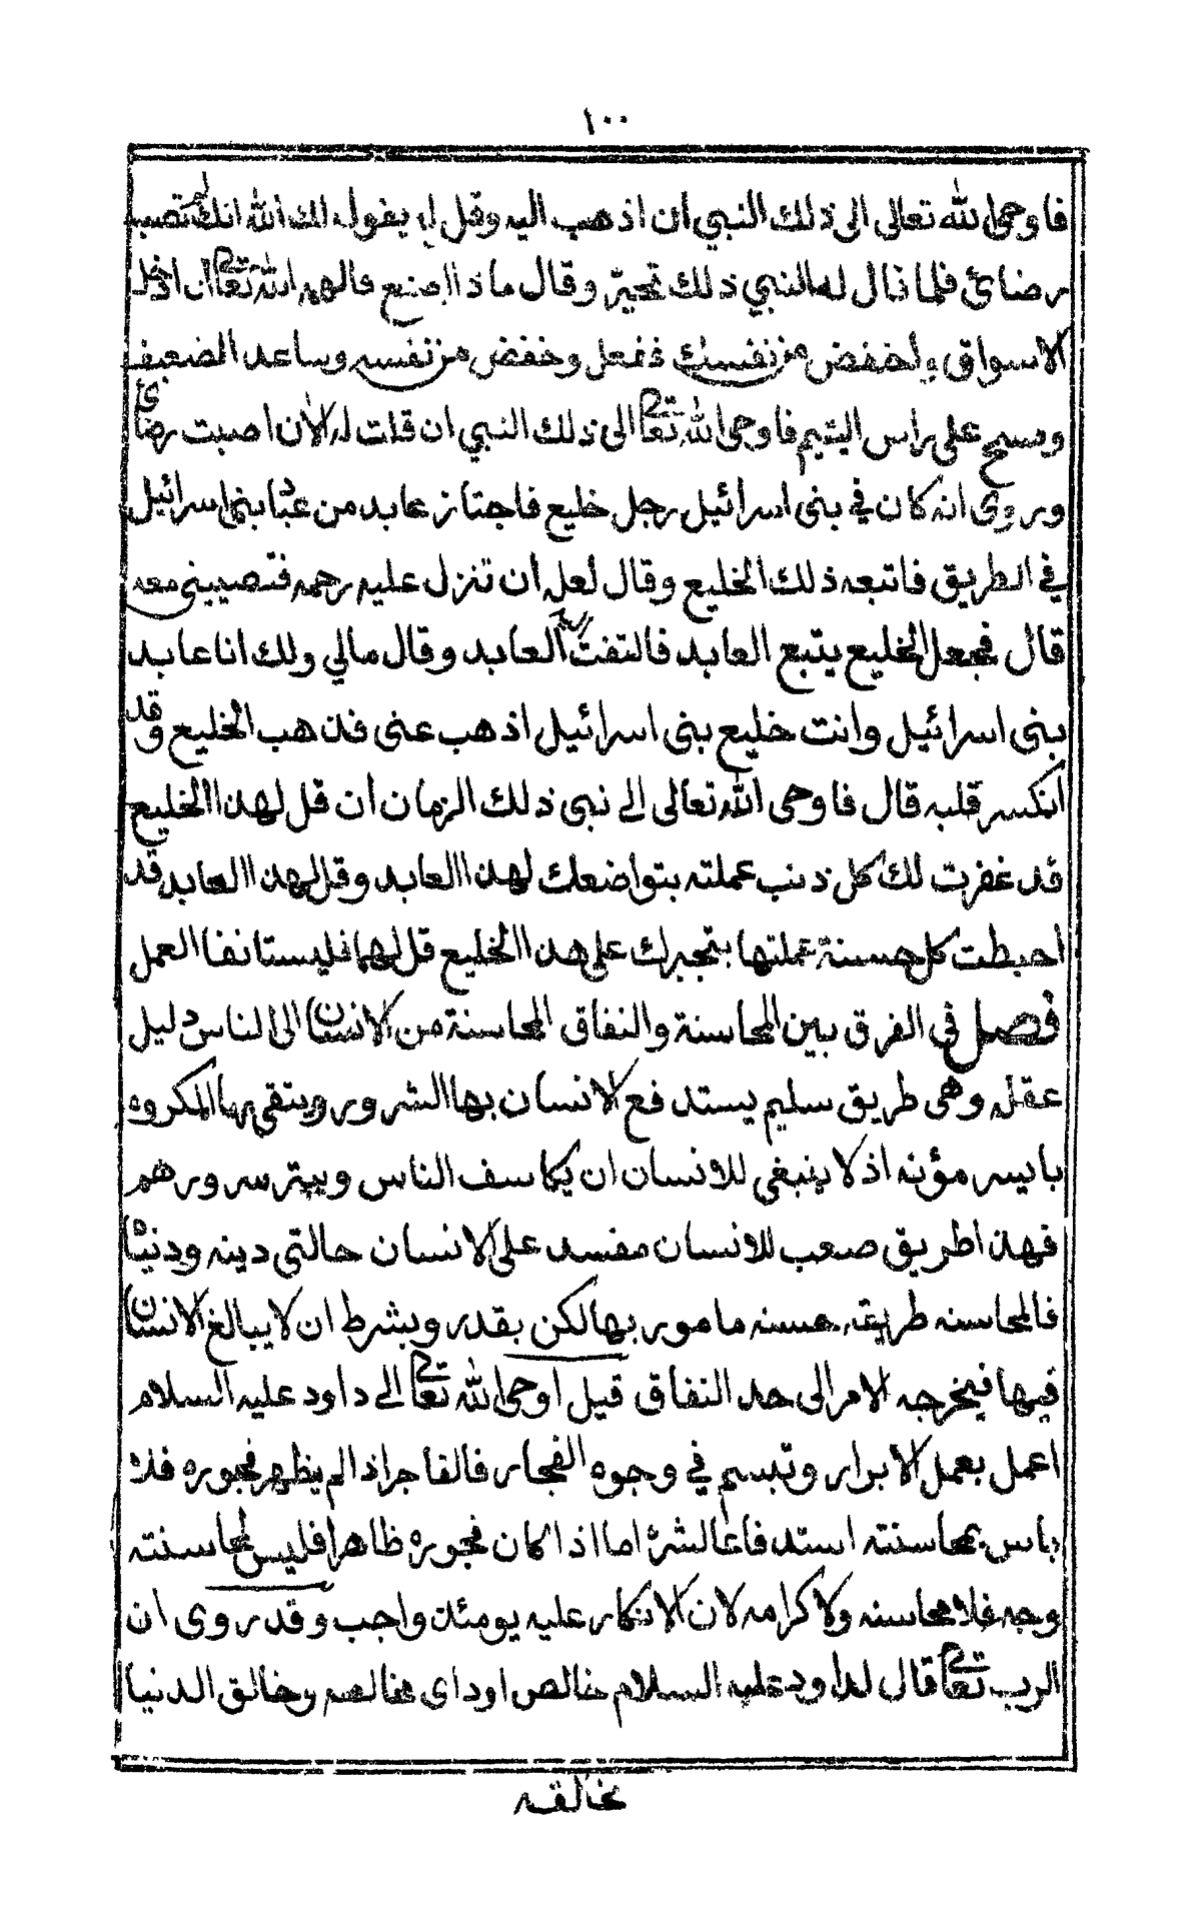 ١٠٠
فاوحى الله تعالى الى ذلك النبي ان اذهب اليه وقل له يقول لك الله انك لم تصب
رضائ فلما قال له النبي ذلك تحيّر وقال ماذا اصنع فالهمه الله تعالى ان ادخل
الاسواق واخفض من نفسك ففعل وخفض من نفسه وساعد الضعيف
ومسح على راس اليتيم فاوحى الله تعالى الى ذلك النبي ان قلت له الان اصبت رضائ
وروى انه كان في بنى اسرائيل رجل خليع فاجتاز عابد من عباد بنى اسرائيل
في الطريق فاتبعه ذلك الخليع وقال لعله ان تنزل عليه رحمه فتصيبنى معه
قال فجعل الخليع يتبع العابد فالتفت اليه العابد وقال مالي ولك انا عابد
بنى اسرائيل وانت خليع بنى اسرائيل اذهب عنى فذهب الخليع وقد
انكسر قلبه قال فاوحى الله تعالى الے نبى ذلك الزمان ان قل لهذا الخليع
قد غفرت لك كل ذنب عملته بتواضعك لهذا العابد وقل لهذا العابد قد
احبطت كل حسنة عملتها بتجبرك على هذا الخليع قل لهما فليستانفا العمل
فصل في الفرق بين المحاسنة والنفاق المحاسنة من الانسان الى الناس دليل
عقله وهى طريق سليم يستدفع الانسان بها الشرور ويتقى بها المكروه
بايسر مؤنه اذ لا ينبغي للانسان ان يكاسف الناس ويبتر سرورهم
فهذا طريق صعب للانسان مفسد على الانسان حالتى دينه ودنياه
فالمحاسنه طريقه حسنه مامور بها لكن بقدر وبشرط ان لا يبالغ الانسان
فيها فيخرجه الامر الى حد النفاق قيل اوحى الله تعالى الے داود عليه السلام
اعمل بعمل الابرار وتبسم في وجوه الفجار فالفاجر اذا لم يظهر فجوره فلا
باس بمحاسنته استدفاعا لشره اما اذا كان فجوره ظاهرا فليس لمحاسنته
وجه فلا محاسنه ولا كرامه لان الانكار عليه يومئذ واجب وقد روى ان
الرب تعالى قال لداود عليه السلام خالص اوداى مخالصه وخالق الدنيا
مخالقه